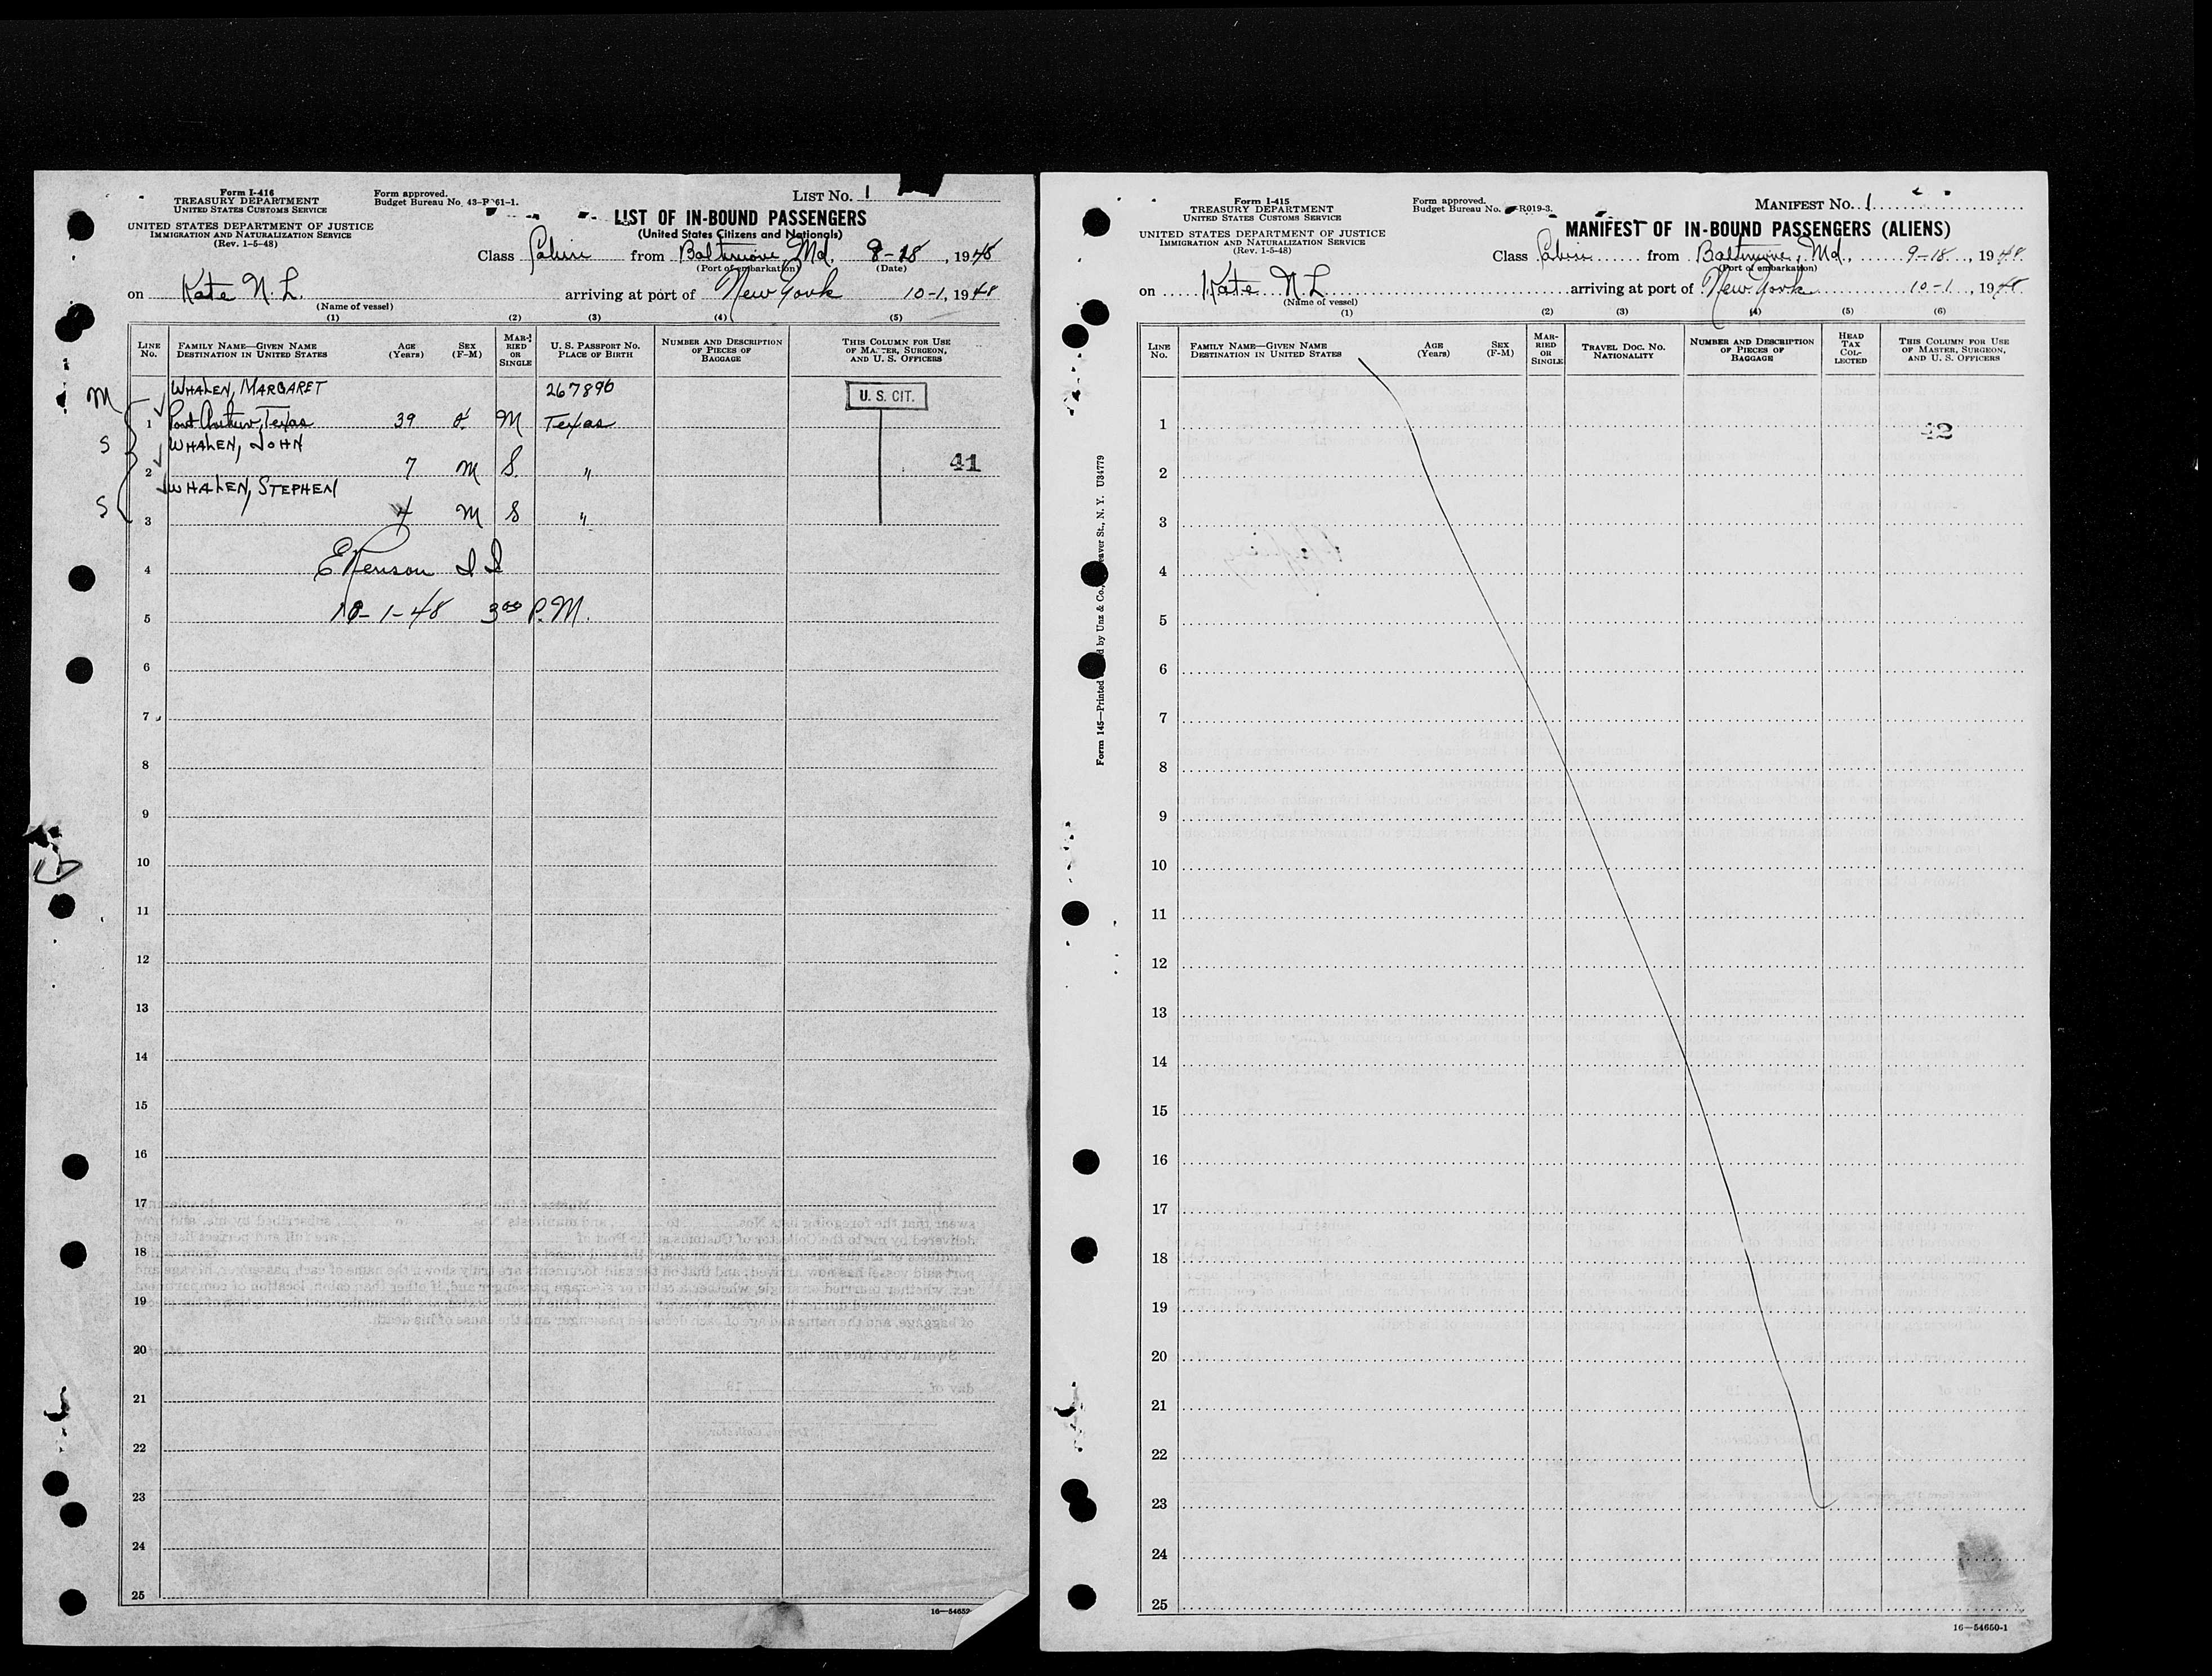 Form I-416
TREASURY DEPARTMENT
UNITED STATES CUSTOMS SERVICE
UNITED STATES DEPARTMENT OF JUSTICE
IMMIGRATION AND NATURALIZATION SERVICE
(Rev. 1-5-48)
Form approved.
Budget Bureau No. 43-R 61-1.
LIST No. 1
LIST OF IN-BOUND PASSENGERS
(United States Citizens and Nationals)
Class Cabin from Baltimore, Md. 9-18, 1948
(Port of embarkation) (Date)
on Kate N. L. arriving at port of New York 10-1, 1948
(Name of vessel)
(1) (2) (3) (4) (5)
LINE No. FAMILY NAME—GIVEN NAME DESTINATION IN UNITED STATES AGE (Years) SEX (F-M) MARRIED OR SINGLE U. S. PASSPORT NO. PLACE OF BIRTH NUMBER AND DESCRIPTION OF PIECES OF BAGGAGE THIS COLUMN FOR USE OF MASTER, SURGEON, AND U. S. OFFICERS
M WHALEN, MARGARET 267896 U. S. CIT.
1 Port Arthur, Texas 39 M Texas
S WHALEN, JOHN
2 7 M S. " 41
WHALEN, STEPHEN
S 3 4 M S "
4
10-1-48 3 00 P.M.
5
6
7
8
9
10
11
12
13
14
15
16
17
18
19
20
21
22
23
24
25
16—54652
Form I-415
TREASURY DEPARTMENT
UNITED STATES CUSTOMS SERVICE
UNITED STATES DEPARTMENT OF JUSTICE
IMMIGRATION AND NATURALIZATION SERVICE
(Rev. 1-5-48)
Form approved.
Budget Bureau No. -R019-3.
MANIFEST No. 1
MANIFEST OF IN-BOUND PASSENGERS (ALIENS)
Class Cabin from Baltimore, Md., 9-18, 1948
(Port of embarkation)
on Kate N. L arriving at port of New York 10-1, 1948
(Name of vessel)
(1) (2) (3) (4) (5) (6)
LINE No. FAMILY NAME—GIVEN NAME DESTINATION IN UNITED STATES AGE (Years) SEX (F-M) MARRIED OR SINGLE TRAVEL DOC. NO. NATIONALITY NUMBER AND DESCRIPTION OF PIECES OF BAGGAGE HEAD TAX COLLECTED THIS COLUMN FOR USE OF MASTER, SURGEON, AND U. S. OFFICERS
1 42
2
3
4
5
6
7
8
9
10
11
12
13
14
15
16
17
18
19
20
21
22
23
24
25
Form 145—Printed by Unz & Co. St., N. Y. U34779
16—54650-1